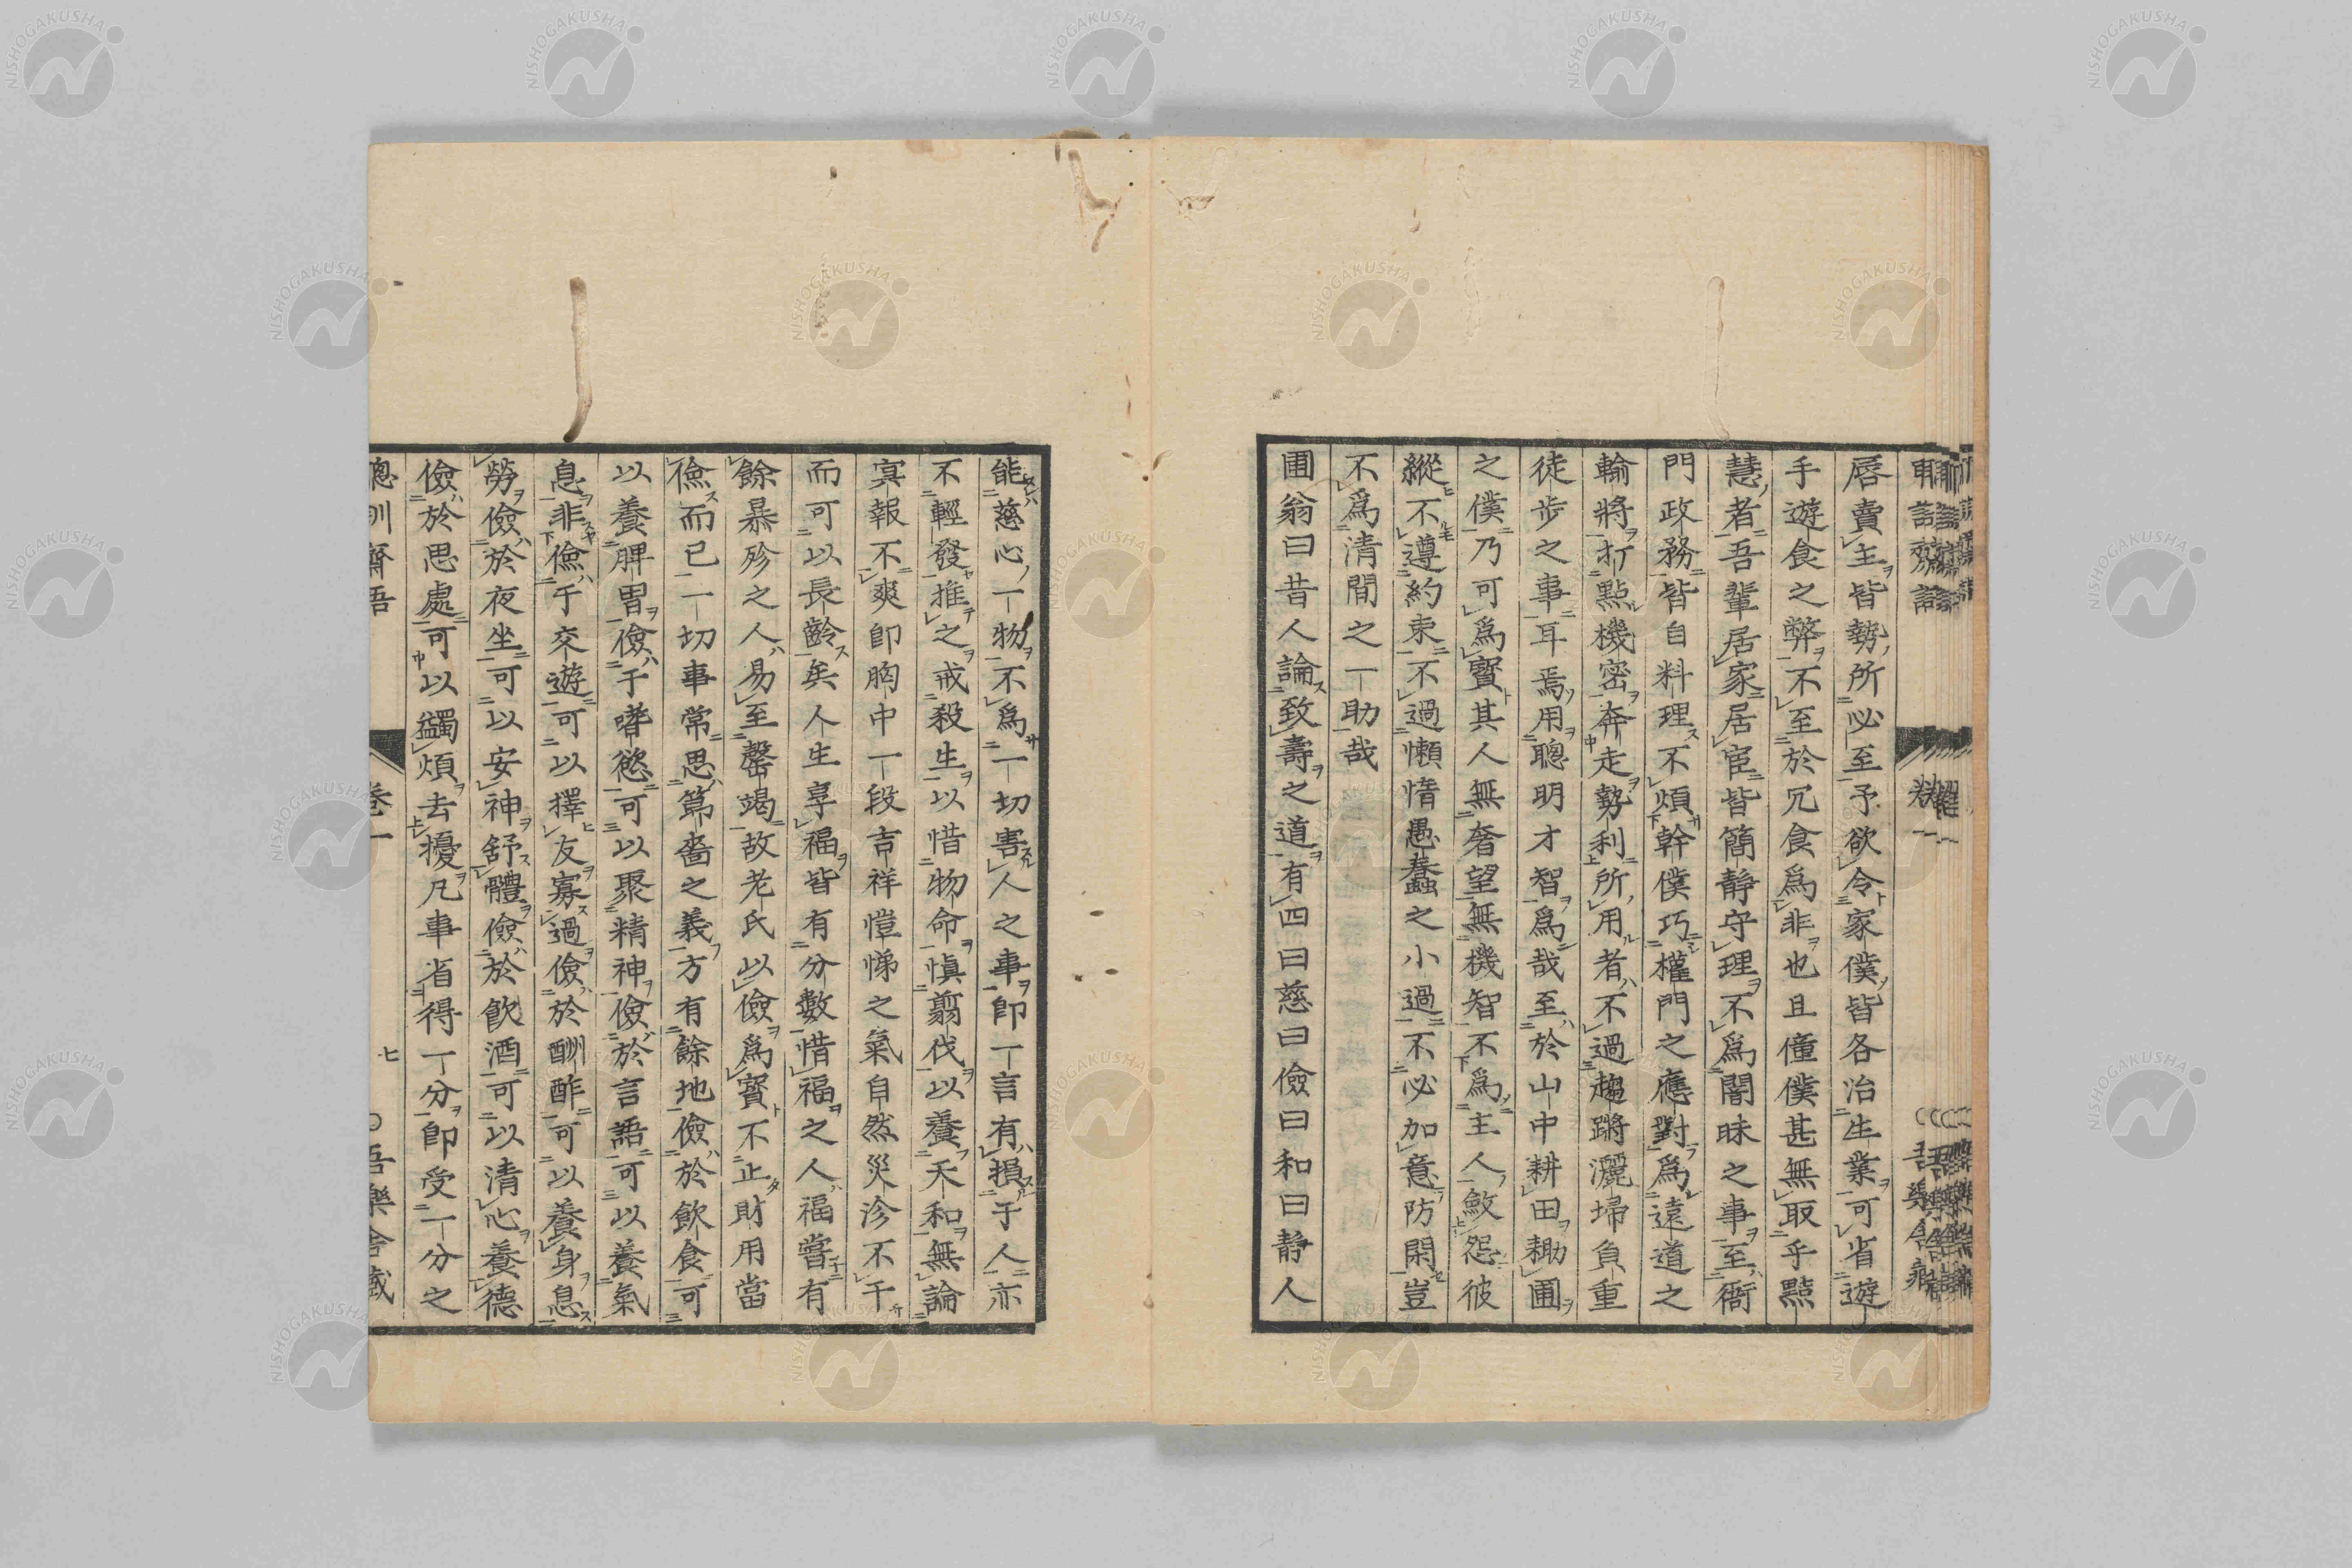 唇賣主皆勢所必至予欲令家僕皆各治生業可省遊
手遊食之弊不至於冗食爲非也且僮僕甚無取乎黠
慧者吾輩居家居宦皆簡靜守理不爲闇昧之事至衙
門政務皆自料理不煩幹僕巧權門之應對爲遠道之
輸將打點機密奔走勢利所用者不過趨蹡灑埽負重
徒步之事耳焉用聰明才智爲哉至於山中耕田耡圃
之僕乃可爲寳其人無奢望無機智不爲主人斂怨彼
縱不遵約束不過懶惰愚蠢之小過不必加意防閑豈
不爲清閒之一助哉
圃翁曰昔人論致壽之道有四曰慈曰儉曰和曰靜人
能慈心一物不爲一切害人之事卽一言有損于人亦
不輕發推之戒殺生以惜物命愼翦伐以養天和無論
冥報不爽卽胸中一段吉祥愷悌之氣自然災沴不干
而可以長齡矣人生享福皆有分數惜福之人福嘗有
餘暴殄之人易至罄竭故老氏以儉爲寳不止財用當
儉而已一切事常思節嗇之義方有餘地儉於飮食可
以養脾胃儉于嗜慾可以聚精神儉於言語可以養氣
息非儉于交遊可以擇友寡過儉於酬酢可以養身息
勞儉於夜坐可以安神舒體儉於飮酒可以清心養德
儉於思慮可以蠲煩去擾凡事省得一分卽受一分之
聰訓齋語 卷一 七 吾樂舍藏
NISHOGAKUSHA